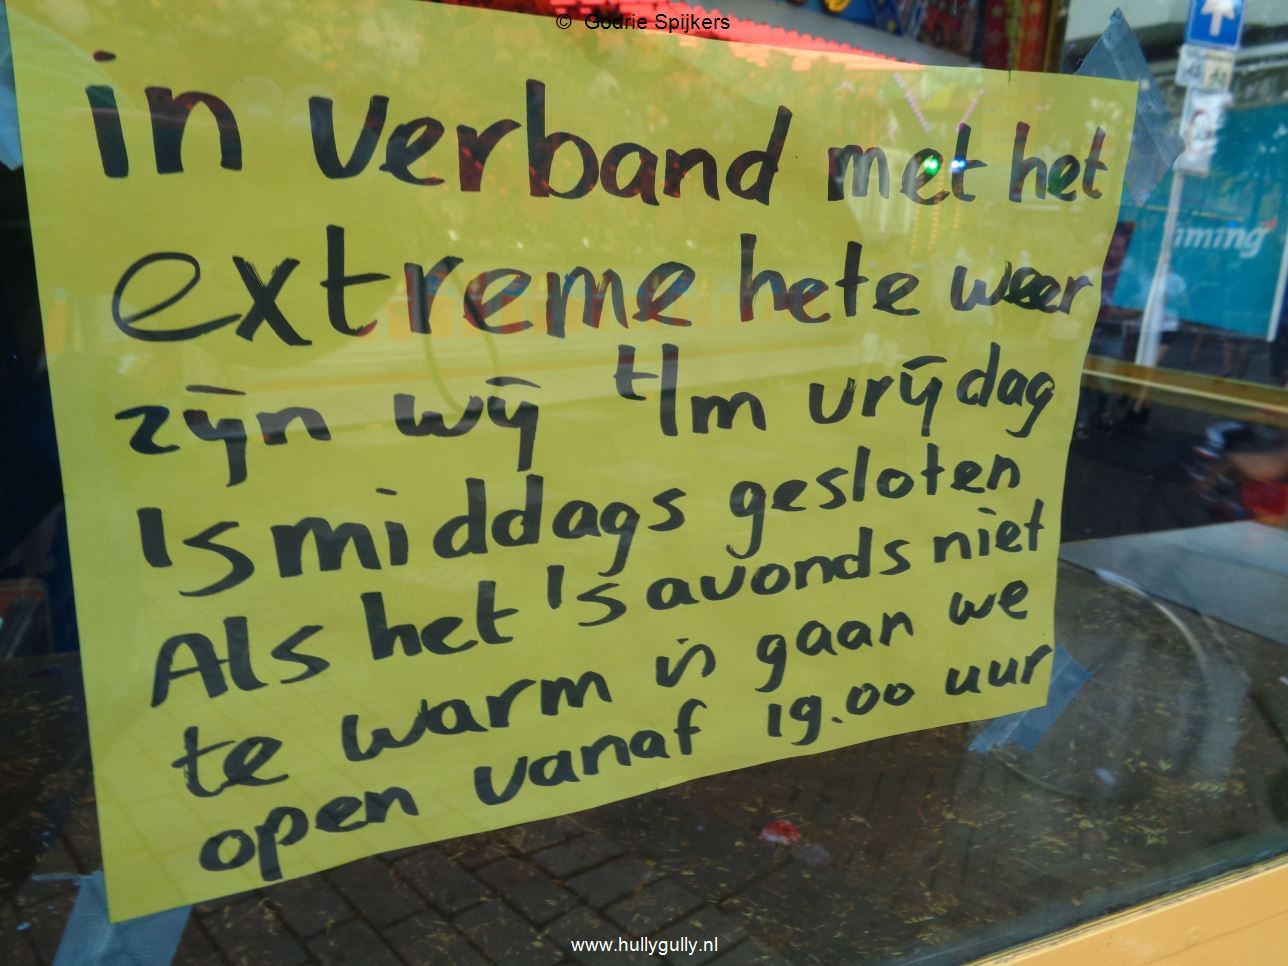 © Godrie Spijkers
in verband met het
extreme hete weer
zijn wij t/m vrijdag
's middags gesloten
Als het 's avonds niet
te warm is gaan we
open vanaf 19.00 uur
iming
www.hullygully.nl